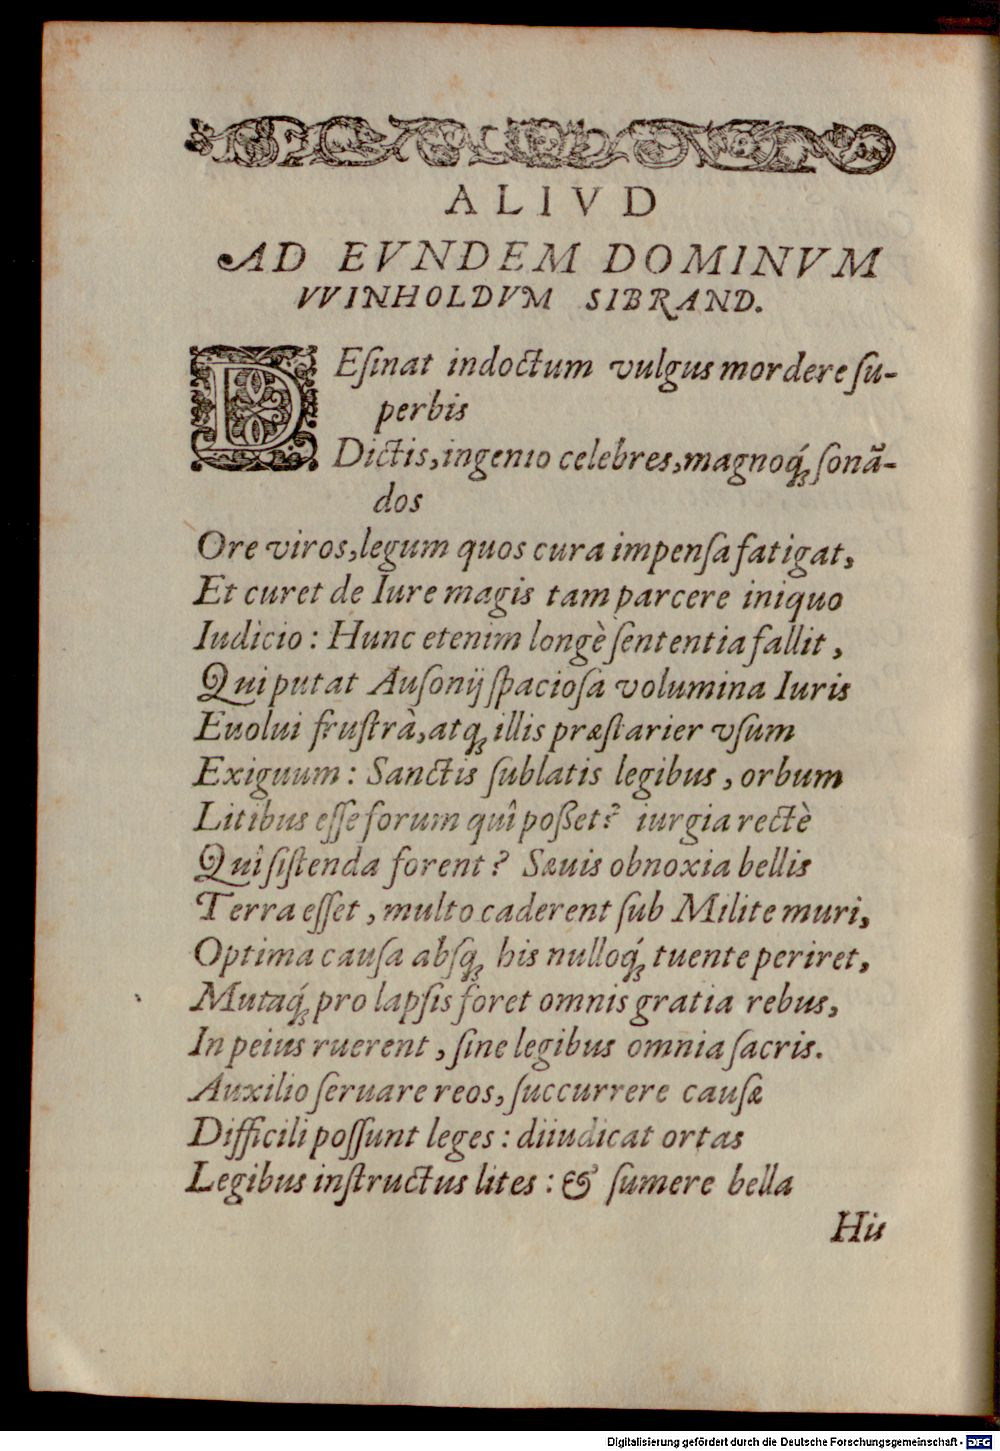 ALIVD
AD EVNDEM DOMINVM
VVINHOLDVM SIBRAND.
DEſinat indoctum vulgus mordere ſu-
perbis
Dictis, ingenio celebres, magnoq́; ſonã-
dos
Ore viros, legum quos cura impenſa fatigat,
Et curet de Iure magis tam parcere iniquo
Iudicio: Hunc etenim longè ſententia fallit,
Qui putat Auſonij ſpacioſa volumina Iuris
Euolui fruſtrà, atq; illis præſtarier vſum
Exiguum: Sanctis ſublatis legibus, orbum
Litibus eſſe forum quî poßet? iurgia rectè
Quî ſiſtenda forent? Sæuis obnoxia bellis
Terra eſſet, multo caderent ſub Milite muri,
Optima cauſa abſq; his nulloq́; tuente periret,
Mutaq́; pro lapſis foret omnis gratia rebus,
In peius ruerent, ſine legibus omnia ſacris.
Auxilio ſeruare reos, ſuccurrere cauſæ
Difficili poſſunt leges: diiudicat ortas
Legibus inſtructus lites: & ſumere bella
His
Digitalisierung gefördert durch die Deutsche Forschungsgemeinschaft - DFG